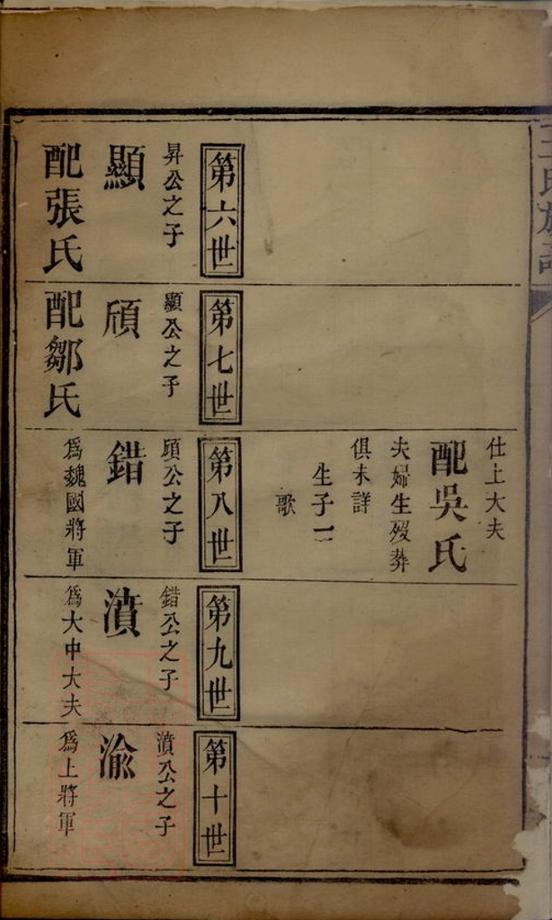 王氏族譜
仕上大夫
配吳氏
夫婦生歿葬
俱未詳
生子一
歌
第六世
昇公之子
顯
配張氏
第七世
顯公之子
頎
配鄒氏
第八世
頎公之子
錯
為魏國將軍
第九世
錯公之子
濆
為大中大夫
第十世
濆公之子
渝
為上將軍